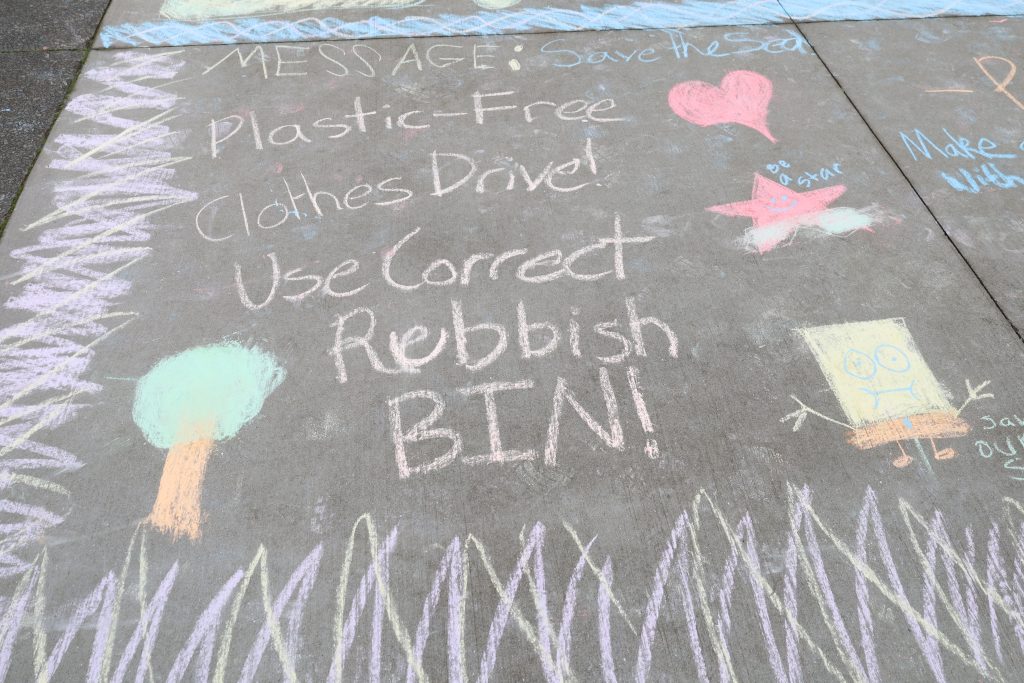 MESSAGE: Save The Sea
Plastic-Free
Clothes Drive!
Use Correct
Rubbish
BIN!
be
a star
Make
With
OUR